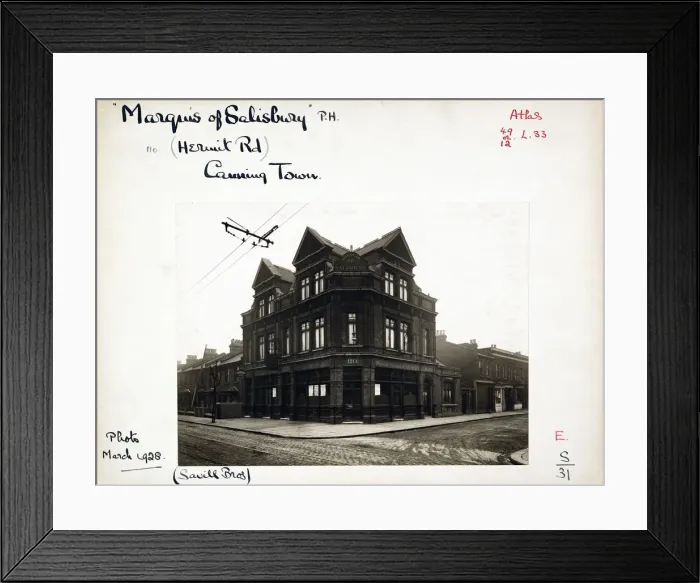 "Marquis of Salisbury" P.H.
110 (Hermit Rd)
Canning Town.
Atlas
49 or 12 L. 33
Photo
March 1928.
(Savill Bros)
E.
S
31